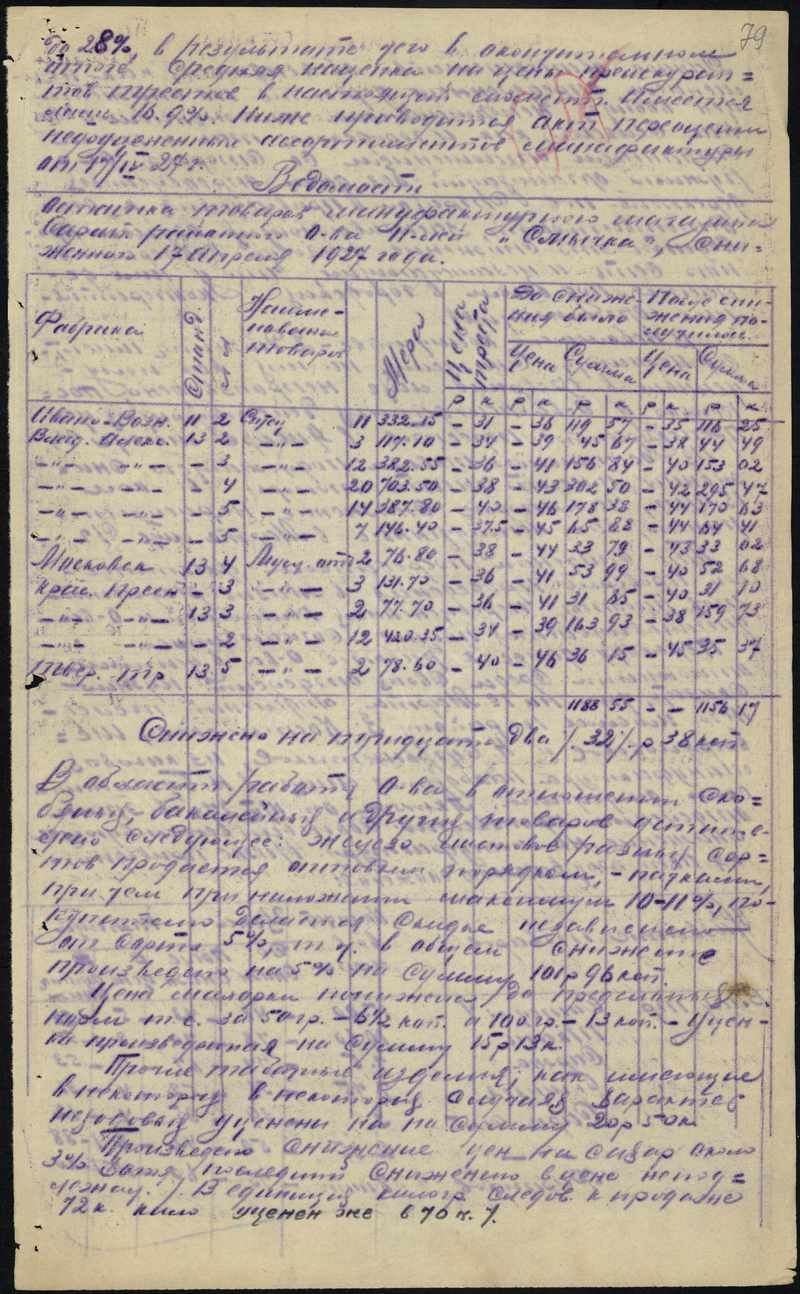 79
до 28%, в результате чего в окончательном
итоге средняя наценка на цены прейскуран=
тов трестов в настоящий момент имеется
лишь 13.9%. Ниже приводится акт переоценки
недооцененных ассортиментов мануфактуры
от 17/IV 27 г.
Ведомость
остатка товаров мануфактурного магазина
О-ва П-лей "Смычка", сни-
женного 17 апреля 1927 года.
Фабрика Станд. Наиме-нование товаров Мера Цена треста До сниже-ния было После сни-жения по-лучилось
Цена Сумма Цена Сумма
р к р к р к р к р к
Ивано-Возн. 11 2 Ситец 11 332.15 - 31 - 36 119 57 - 35 116 25
Влад. Алекс. 13 2 -"- 3 117.10 - 34 - 39 45 67 - 38 44 49
-"- -"- - 3 -"- 12 382.55 - 36 - 41 156 84 - 40 153 02
-"- -"- - 4 -"- 20 703.50 - 38 - 43 302 50 - 42 295 47
-"- -"- - 5 -"- 14 387.80 - 40 - 46 178 38 - 44 170 63
-"- -"- - 5 -"- 7 146.40 - 37.5 - 45 65 88 - 44 64 41
Московск 13 4 2 76.80 - 38 - 44 33 79 - 43 33 02
Крас. Пресн - 3 -"- 3 131.70 - 36 - 41 53 99 - 40 52 68
-"- -"- 13 3 -"- 2 77.70 - 36 - 41 31 85 - 40 31 10
-"- -"- - 2 -"- 12 420.35 - 34 - 39 163 93 - 38 159 73
Твер. тр 13 5 -"- 2 78.60 - 40 - 46 36 15 - 45 35 37
1188 55 - - 1156 17
Снижено на тридцать два /32/ р 38 коп
В области работы О-ва в отношении ско=
бяных, бакалейных и других товаров
следующее: железо листовое разных сор=
тов продается оптовым порядком, - пачками,
при чем при наложении максимум 10-11%, по-
купателю делается скидка независимо
от сорта 5%, т.ч. в общем снижение
произведено на 5% на сумму 101 р 96 коп.
Цена махорки понижена до предельных
норм т.е. за 50 гр. - 6½ коп. и 100 гр. - 13 коп. - Уцен-
ка произведенная на сумму 15 р 13 к.
Прочие табачные изделия, как имеющие
в некотор в некоторых случаях характер
уценены на сумму 20 р 50 к.
Произведено снижение цен на сахар около
3% последний снижению в цене непод=
лежал. /В единицу килогр. следов. к продаже
72 к. кило уценен же в 70 к./.